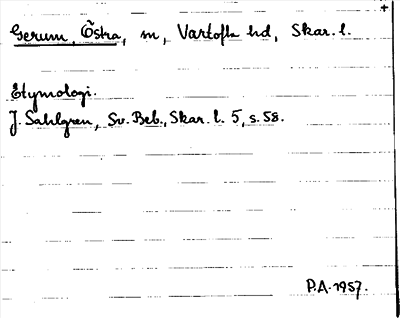 +
Gerum, Östra, m, Vartofta hd, Skar. l.
Etymologi.
J. Sahlgren, Sv. Beb., Skar. l. 5, s. 58.
P.A. 1957.